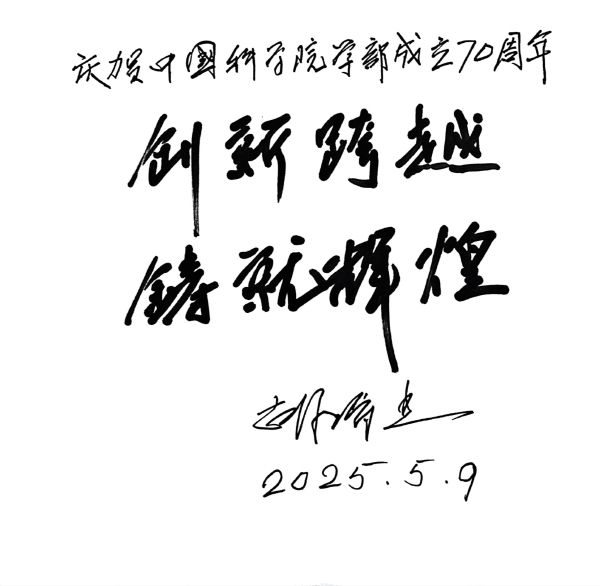 庆贺中国科学院学部成立70周年
创新跨越
铸就辉煌
2025.5.9